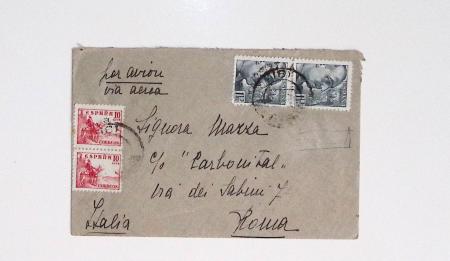 par avion
via aerea
Signora Mazza
c/o "Carbonital"
via dei Sabini 7
Roma
Italia
ESPAÑA 10
CORREOS
ESPAÑA 10
CORREOS